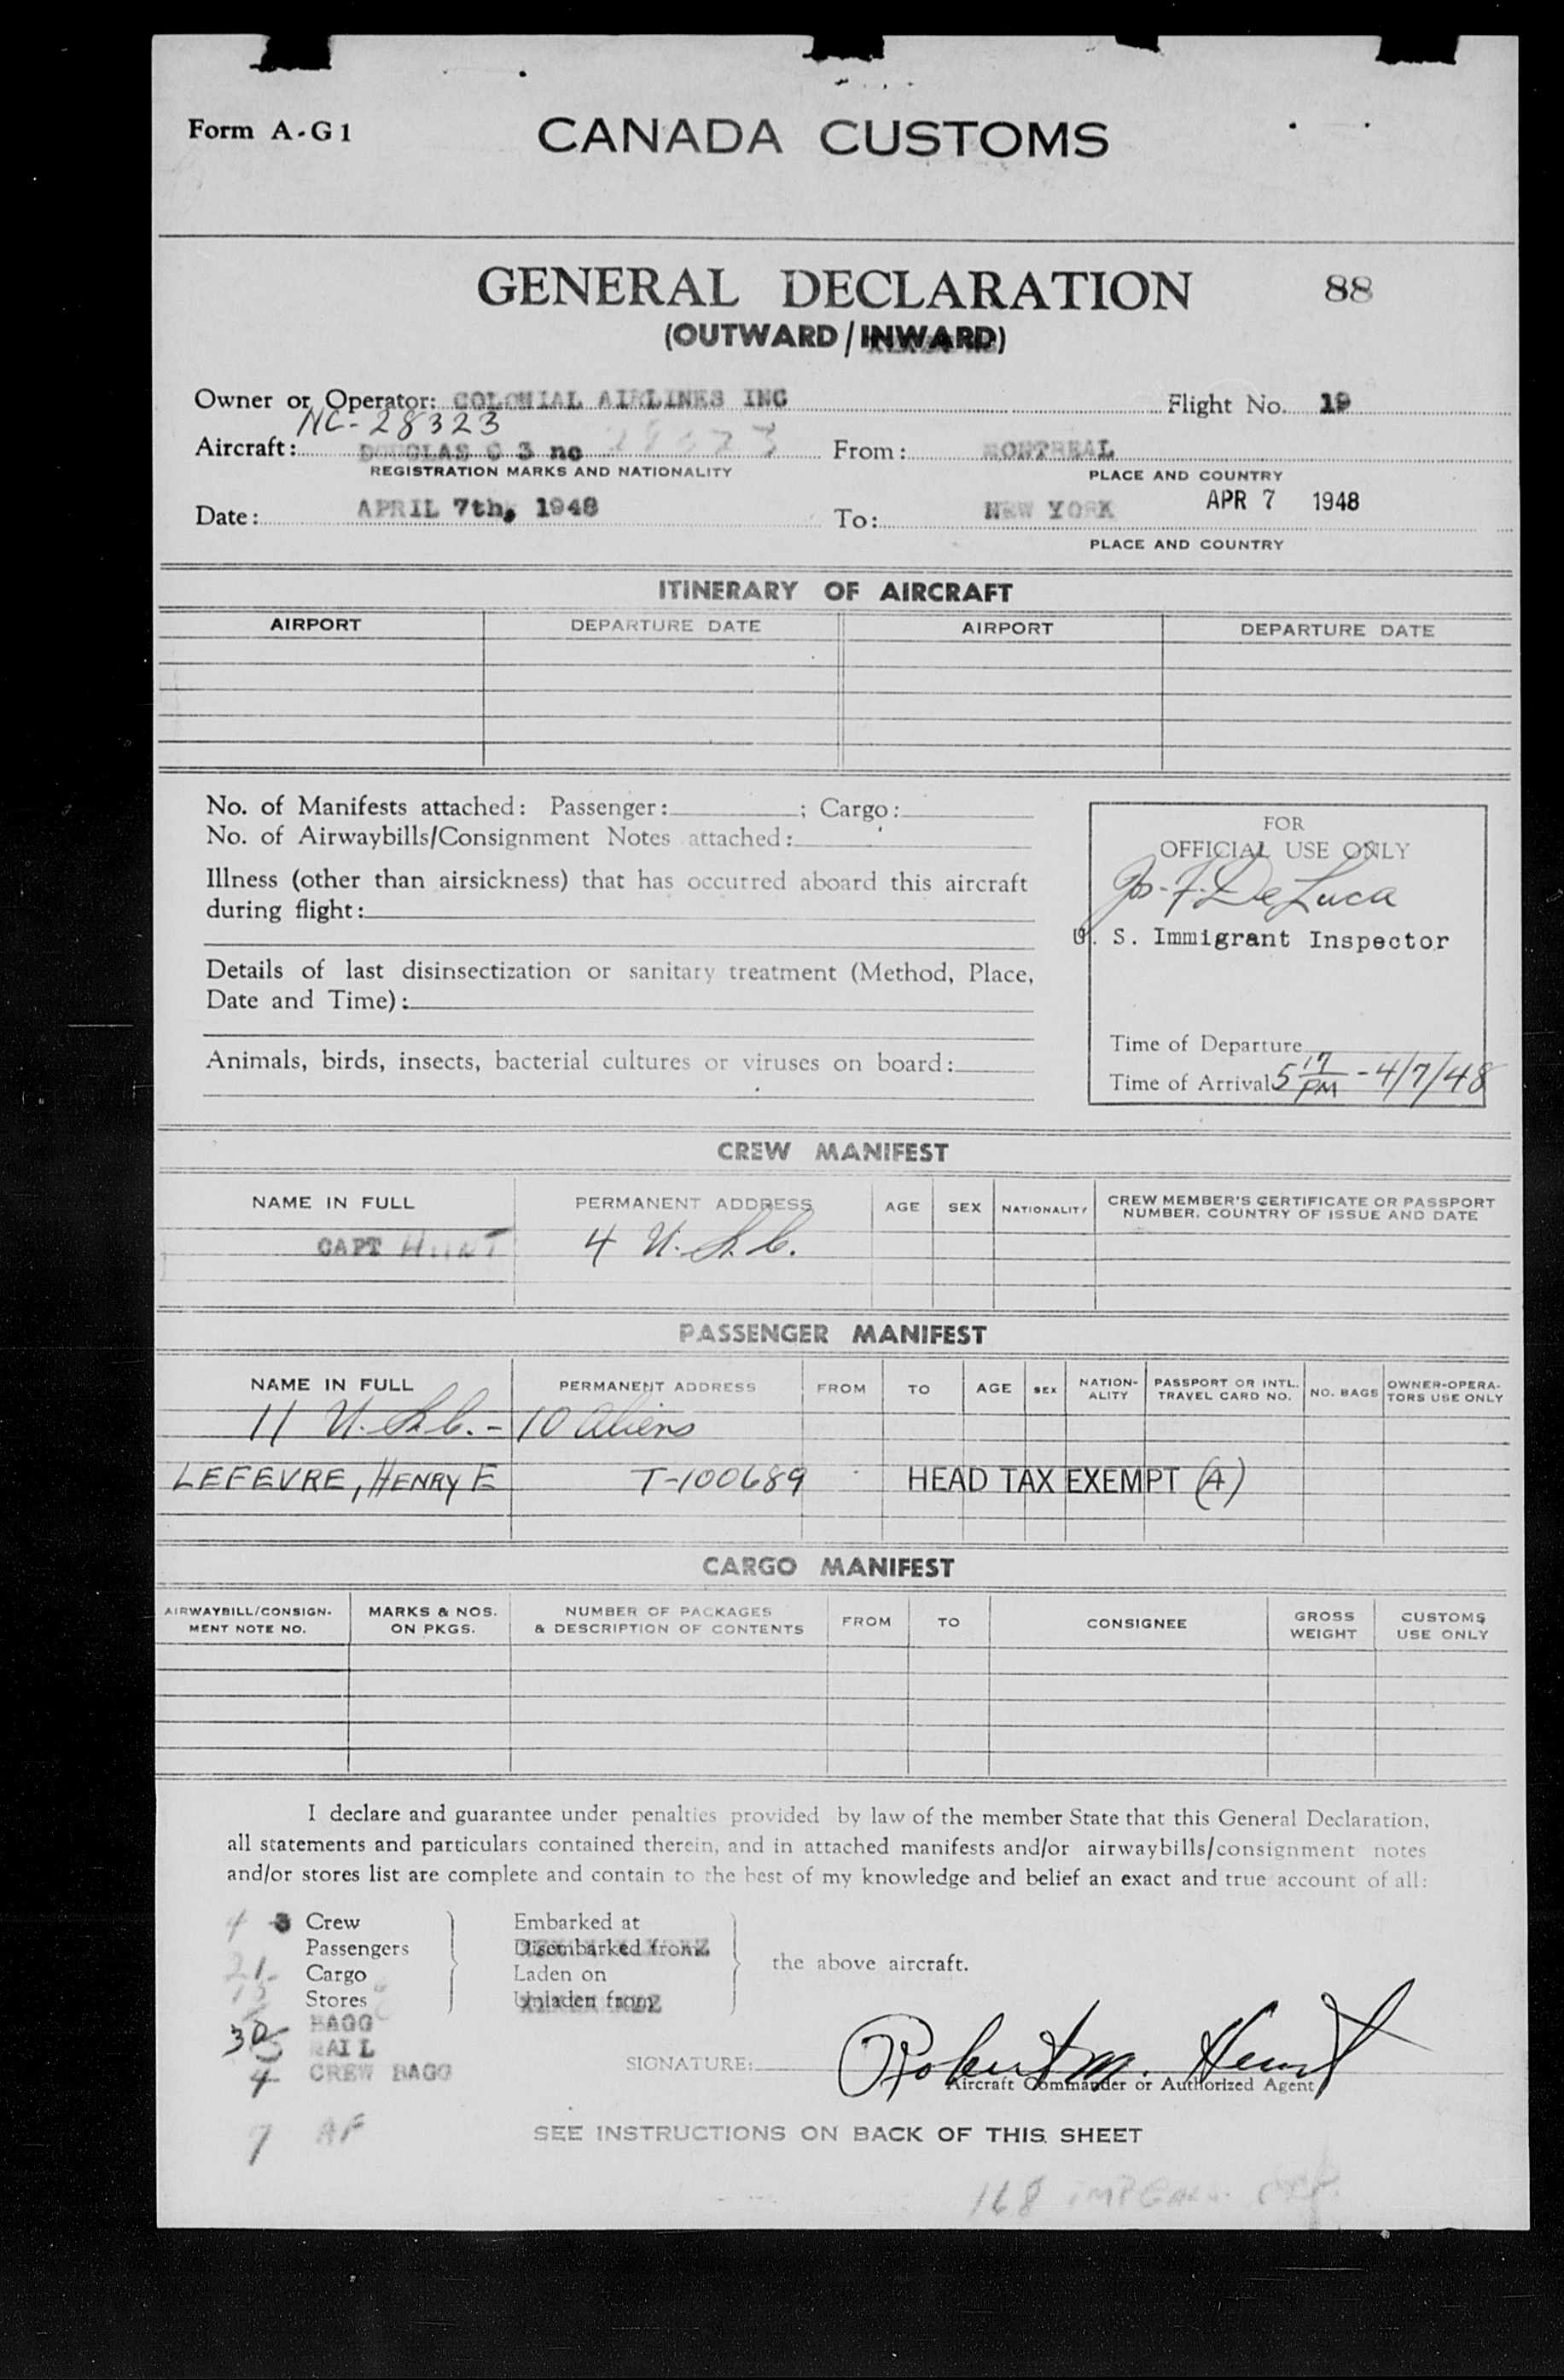 Form A-G1
CANADA CUSTOMS
GENERAL DECLARATION 88
(OUTWARD/INWARD)
Owner or Operator: COLONIAL AIRLINES INC Flight No. 19
NC-28323
Aircraft: DOUGLAS C 3 nc 28323 From: MONTREAL
REGISTRATION MARKS AND NATIONALITY PLACE AND COUNTRY
APR 7 1948
Date: APRIL 7th, 1948 To: NEW YORK
PLACE AND COUNTRY
ITINERARY OF AIRCRAFT
AIRPORT DEPARTURE DATE AIRPORT DEPARTURE DATE
No. of Manifests attached: Passenger: ; Cargo:
No. of Airwaybills/Consignment Notes attached:
Illness (other than airsickness) that has occurred aboard this aircraft
during flight:
Details of last disinsectization or sanitary treatment (Method, Place,
Date and Time):
Animals, birds, insects, bacterial cultures or viruses on board:
FOR
OFFICIAL USE ONLY
Jos. F. De Luca
U. S. Immigrant Inspector
Time of Departure
Time of Arrival 5 17 PM - 4/7/48
CREW MANIFEST
NAME IN FULL PERMANENT ADDRESS AGE SEX NATIONALITY CREW MEMBER'S CERTIFICATE OR PASSPORT
NUMBER. COUNTRY OF ISSUE AND DATE
CAPT HUNT 4 U.S.C.
PASSENGER MANIFEST
NAME IN FULL PERMANENT ADDRESS FROM TO AGE SEX NATION-
ALITY PASSPORT OR INTL.
TRAVEL CARD NO. NO. BAGS OWNER-OPERA-
TORS USE ONLY
11 U.S.C. - 10 Aliens
LEFEVRE, HENRY E T-100689 HEAD TAX EXEMPT (A)
CARGO MANIFEST
AIRWAYBILL/CONSIGN-
MENT NOTE NO. MARKS & NOS.
ON PKGS. NUMBER OF PACKAGES
& DESCRIPTION OF CONTENTS FROM TO CONSIGNEE GROSS
WEIGHT CUSTOMS
USE ONLY
I declare and guarantee under penalties provided by law of the member State that this General Declaration,
all statements and particulars contained therein, and in attached manifests and/or airwaybills/consignment notes
and/or stores list are complete and contain to the best of my knowledge and belief an exact and true account of all:
4 Crew Embarked at
Passengers Disembarked from
21 Cargo Laden on the above aircraft.
Stores Unladen from
30 BAGG
MAIL
4 CREW BAGG
SIGNATURE: Robert M. Hunt
Aircraft Commander or Authorized Agent
7 AF
SEE INSTRUCTIONS ON BACK OF THIS SHEET
168